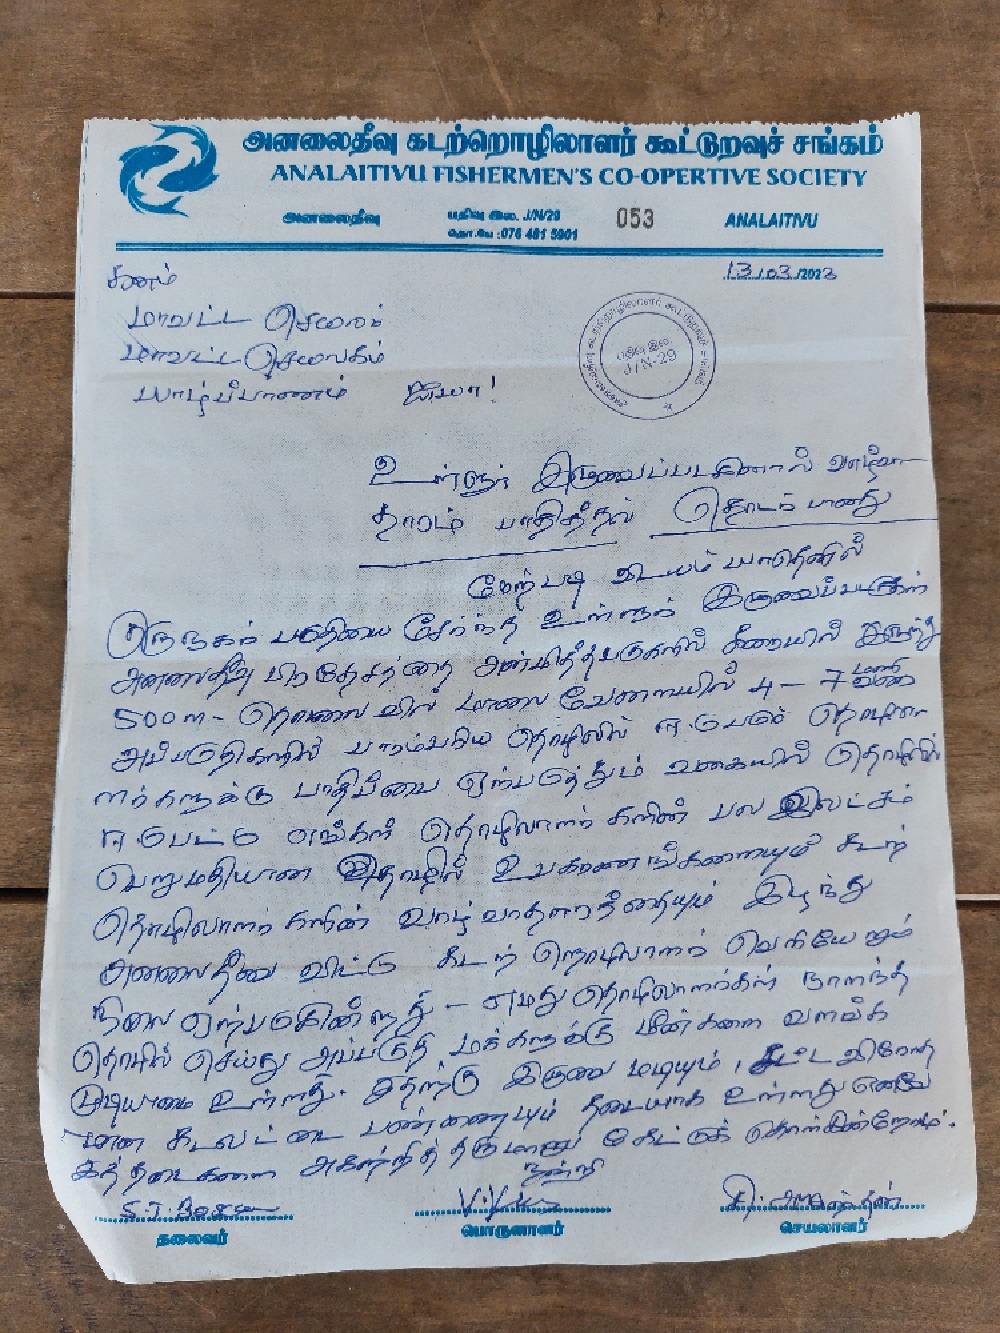 அனலைதீவு கடற்றொழிலாளர் கூட்டுறவுச் சங்கம்
ANALAITIVU FISHERMEN'S CO-OPERTIVE SOCIETY
அனலைதீவு பதிவு இல. J/N/29 053 ANALAITIVU
தொ.பே :076 461 5901
13/03/2023
கனம்
மாவட்ட செயலர்
மாவட்ட செயலகம்
யாழ்ப்பாணம் ஐயா!
பதிவு இல.
J/N-29
உள்ளூர் இழுவைப்படகினால் வாழ்வா
தாரம் பாதித்தல் தொடர்பானது
மேற்படி விடயம் யாதெனில்
குருநகர் பகுதியை சேர்ந்த உள்ளூர் இழுவைப்படகுகள்
அனலைதீவு பிரதேசத்தை அண்மித்த பகுதிகளில் கரையில் இருந்து
500m - தொலைவில் மாலை வேளையில் 4 - 7 மணி
அப்பகுதிகளில் பாரம்பரிய தொழிலில் ஈடுபடும் தொழிலா
ளர்களுக்கு பாதிப்பை ஏற்படுத்தும் வகையில் தொழிலில்
ஈடுபட்டு எங்கள் தொழிலாளர்களின் பல இலட்சம்
பெறுமதியான தொழில் உபகரணங்களையும் கடற்
தொழிலாளர்களின் வாழ்வாதாரத்தையும் இழந்து
அனலைதீவை விட்டு கடற்றொழிலாளர் வெளியேறும்
நிலை ஏற்படுகின்றது - எமது தொழிலாளர்கள்
தொழில் செய்து அப்பகுதி மக்களுக்கு மீன்களை வளங்க
முடியாமை உள்ளது. இதற்கு இழுவை மடியும், சட்டவிரோத
மான கடலட்டை பண்ணையும் தடையாக உள்ளது எனவே
இத்தடைகளை அகற்றித் தருமாறு கேட்டுக் கொள்கின்றோம்.
நன்றி
தலைவர் பொருளாளர் செயலாளர்